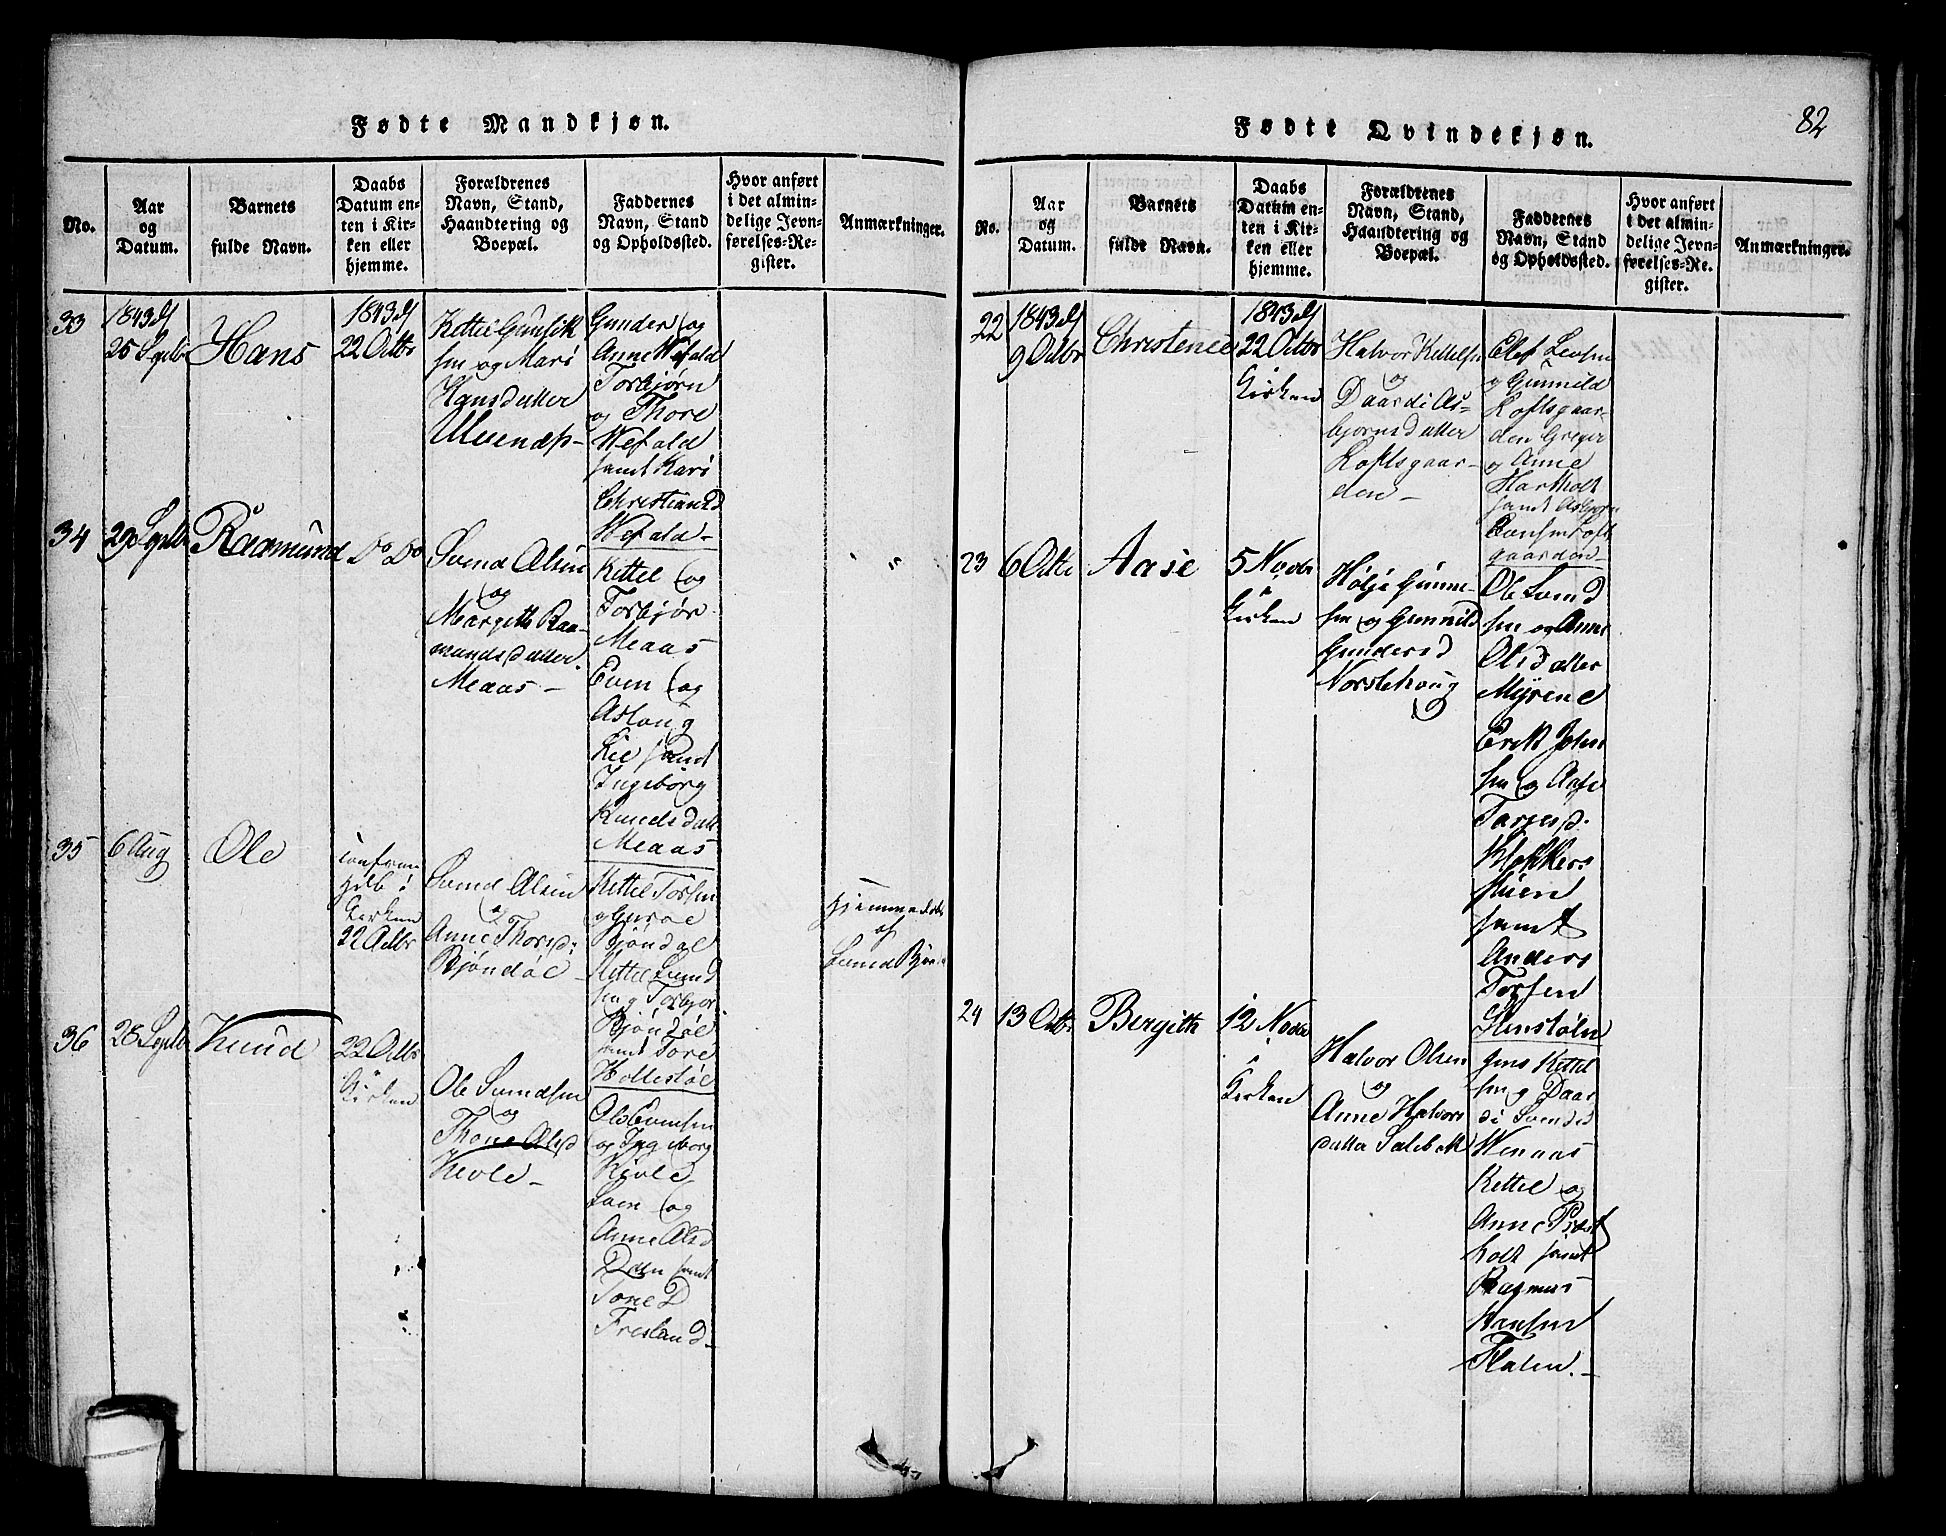 82
Fødte Mandkjøn.
No.
Aar
og
Datum.
Barnets
fulde Navn.
Daabs
Datum en-
ten i Kir-
ken eller
hjemme.
Forældrenes
Navn, Stand,
Haandtering og
Boepæl.
Faddernes
Navn, Stand
og Opholdssted.
Hvor anført
i det almin-
delige Jevn-
førelses-Re-
gister.
Anmærkninger.
33
1843 d
25 Septbr
Hans
1843 d
22 Octbr
Kettil Gunlik
sen og Mari
Hansdatter
Gunder og
Anne Wefald
Torbjørn
og Thore
Wefald
samt Kari
Christian D
Wefald
34
29 Septbr
Raamund
Do Do
Svend Olsen
og
Margith Raa-
mundsdatter
Meaas
Kettel og
Torbjør
Meaas
Even og
Aslaug
Lie samt
Ingeborg
Knudsdatt
Meaas
35
6 Aug
Ole
i
Kirken
22 Octbr
Svend Olsen
og
Anne Thorsd:
Bjøndal
Kettel Torsen
og Guroe
Bjøndal
Kettel Svend
sen og Torbjør
Bjøndal
samt Tore
Hollestøl
Hjemmedøbt
af
Svend
36
28 Septbr
Knud
22 Octbr
i
Kirken
Ole Svendsen
og
Thone Olsd
Kivle
Ole Evensen
og Ingeborg
Kivle
Sven og
Anne Olsd
samt
Tone D
Fresland
Fødte Qvindekjøn.
No.
Aar
og
Datum.
Barnets
fulde Navn.
Daabs
Datum en-
ten i Kir-
ken eller
hjemme.
Forældrenes
Navn, Stand,
Haandtering og
Boepæl.
Faddernes
Navn, Stand
og Opholdssted.
Hvor anført
i det almin-
delige Jevn-
førelses-Re-
gister.
Anmærkninger.
22
1843 d
9 Octbr
Christence
1843 d
22 Octbr
Kirken
Halvor Kettelsen
og
Daardi As-
bjørnsdatter
Loftsgaar-
den
Olef Levsen
og Gunnild
Loftsgaar-
den Greger
og Anne
Hartholt
samt Asbjørn
gaarden
23
6 Octbr
Aase
5 Novbr
i
Kirken
Hølje Gunne-
sen og Gunnild
Gundersd
Norstehoug
Ole Svend
sen og Anne
Olsdatter
Myrene
Erik John
sen og Aase
Targesd.
Klokkers
samt
Anders
Torsen
24
13 Octbr
Bergith
12 Novbr
i
Kirken
Halvor Olsen
og
Anne Halvors
datter Salebek
Jens Kettel
sen og Daar
di Svendsd
Wenaas
Kettel og
Anne
holt samt
Rasmus
Hansen
Flaten.